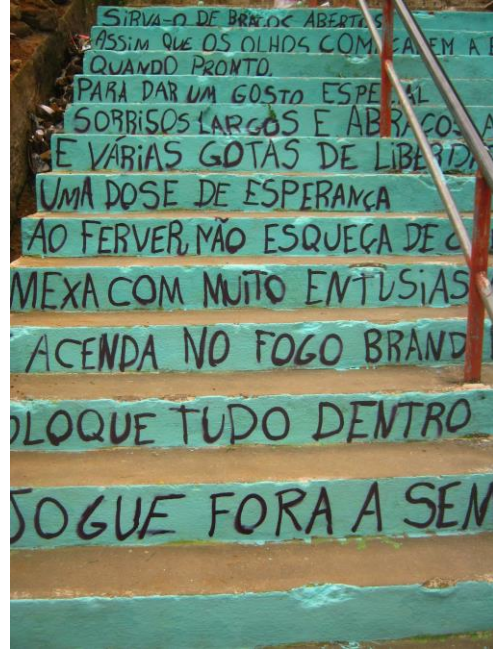 SIRVA-O DE BRAÇOS ABERTOS
ASSIM QUE OS OLHOS COMEÇAREM A
QUANDO PRONTO.
PARA DAR UM GOSTO ESPECIAL
SORRISOS LARGOS E ABRAÇOS A
E VÁRIAS GOTAS DE LIBERDA
UMA DOSE DE ESPERANÇA
AO FERVER, NÃO ESQUEÇA DE C
MEXA COM MUITO ENTUSIAS
ACENDA NO FOGO BRAND
OLOQUE TUDO DENTRO
JOGUE FORA A SEN